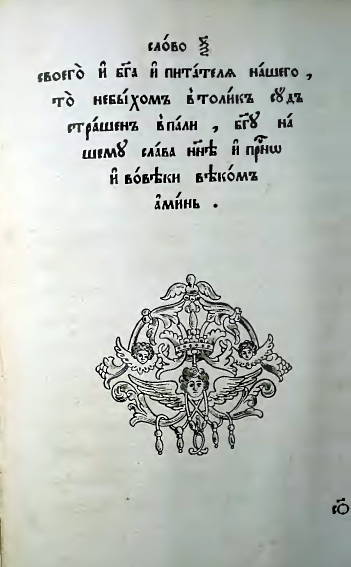 сло́во ѯ҃
своегѡ̀ и҆ бг҃а и҆ пита́телѧ на́шего ,
то̀ небы́хом в̾толикъ сꙋдъ
стра́шенъ впа́ли , бг҃ꙋ на
шемꙋ̀ сла́ва нн҃ѣ и҆ прⷭ҇нѡ
и҆ во́вѣки вѣ́комъ
а҆ми́нь .